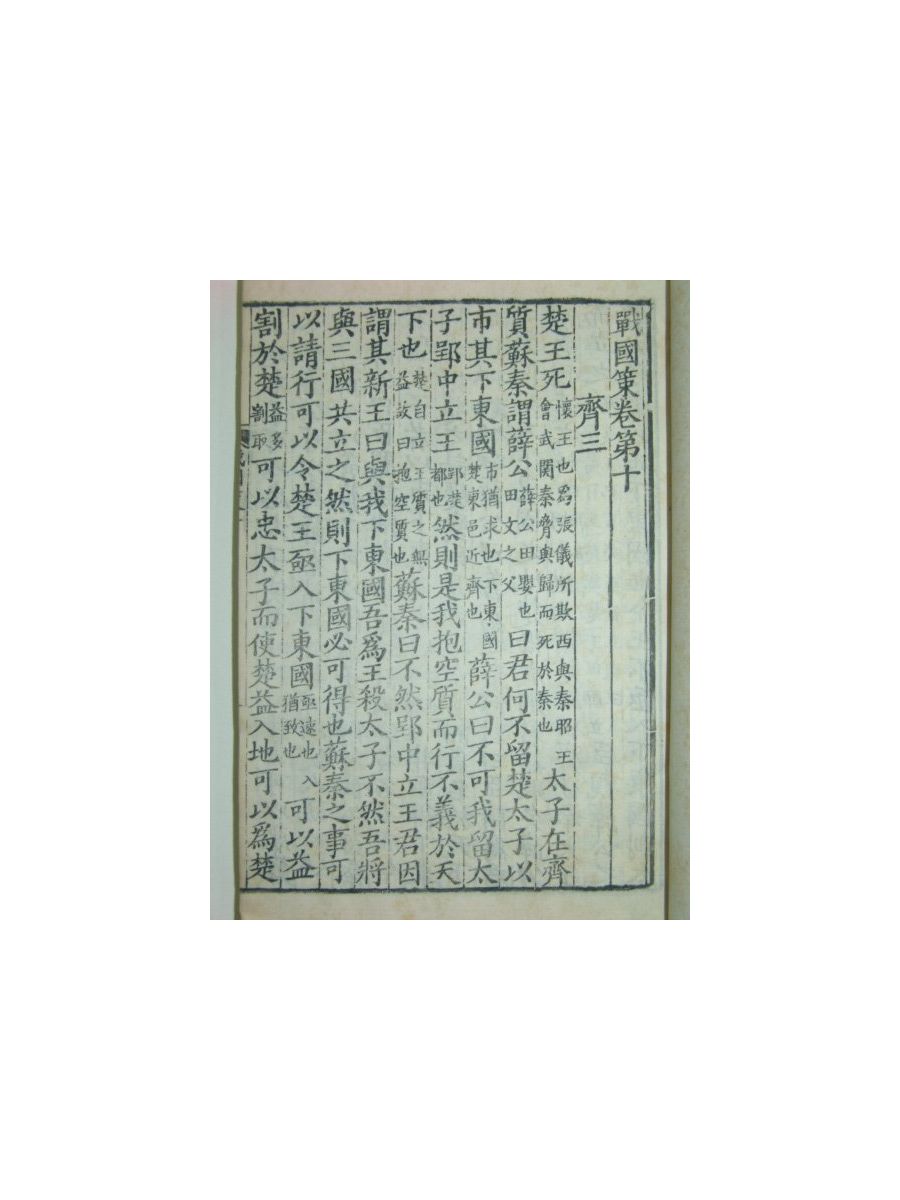 戰國策卷第十
齊三
楚王死懷王也爲張儀所欺西與秦昭王會武關秦脅與歸而死於秦也太子在齊
質蘇秦謂薛公薛公田嬰也田文之父曰君何不留楚太子以
市其下東國市猶求也下東國楚東邑近齊也薛公曰不可我留太
子郢中立王郢楚都也然則是我抱空質而行不義於天
下也楚自立王質之無益故曰抱空質也蘇秦曰不然郢中立王君因
謂其新王曰與我下東國吾爲王殺太子不然吾將
與三國共立之然則下東國必可得也蘇秦之事可
以請行可以令楚王亟入下東國亟速也入猶致也可以益
割於楚益多割取可以忠太子而使楚益入地可以爲楚